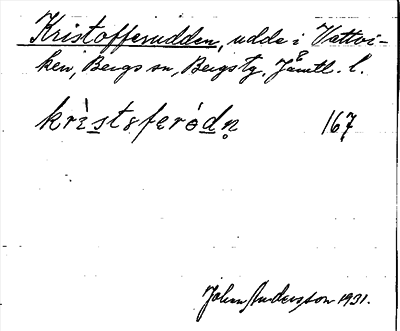 Kristofferudden, udde i Vattvi-
ken, Bergs sn, Bergs tg. Jämtl. l.
krìstoferód̲n̥ 167
John Andersson 1931.